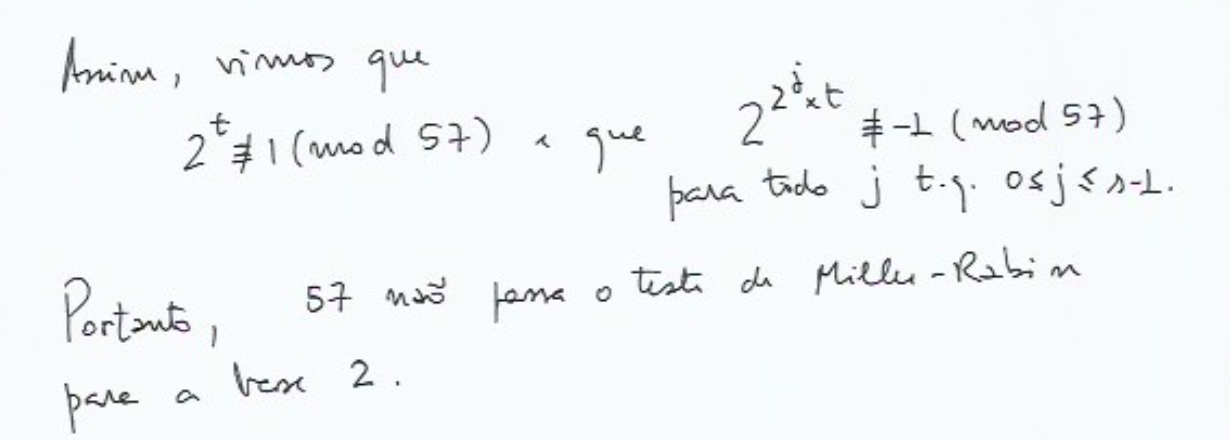 Assim, vimos que
2^t ≢ 1 (mod 57) e que 2^{2^j × t} ≢ -1 (mod 57)
para todo j t.q. 0 ≤ j ≤ s-1.
Portanto, 57 não passa o teste de Miller-Rabin
para a base 2.